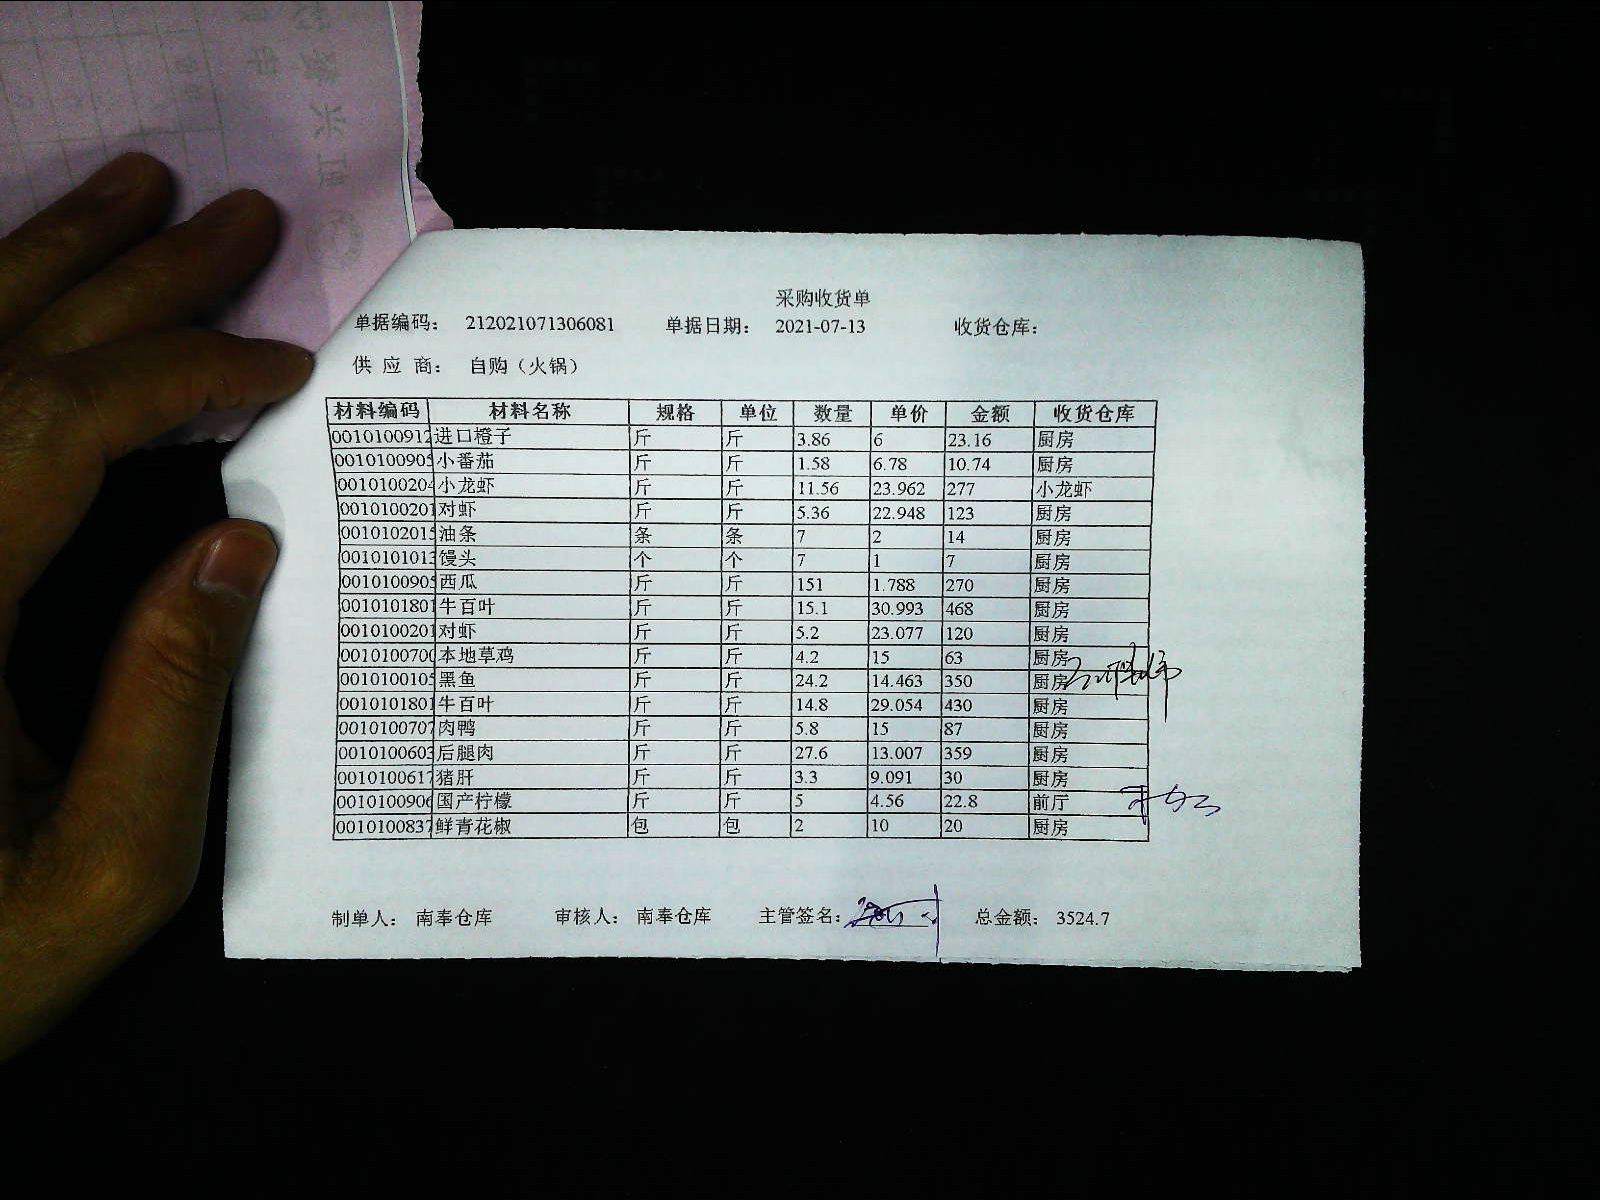 采购收货单
单据编码： 212021071306081 单据日期： 2021-07-13 收货仓库：
供 应 商： 自购（火锅）
材料编码 材料名称 规格 单位 数量 单价 金额 收货仓库
001010091 进口橙子 斤 斤 3.86 6 23.16 厨房
001010090 小番茄 斤 斤 1.58 6.78 10.74 厨房
001010020 小龙虾 斤 斤 11.56 23.962 277 小龙虾
001010020 对虾 斤 斤 5.36 22.948 123 厨房
001010201 油条 条 条 7 2 14 厨房
001010101 馒头 个 个 7 1 7 厨房
001010090 西瓜 斤 斤 151 1.788 270 厨房
001010180 牛百叶 斤 斤 15.1 30.993 468 厨房
001010020 对虾 斤 斤 5.2 23.077 120 厨房
001010070 本地草鸡 斤 斤 4.2 15 63 厨房
001010010 黑鱼 斤 斤 24.2 14.463 350 厨房
001010180 牛百叶 斤 斤 14.8 29.054 430 厨房
001010070 肉鸭 斤 斤 5.8 15 87 厨房
001010060 后腿肉 斤 斤 27.6 13.007 359 厨房
001010061 猪肝 斤 斤 3.3 9.091 30 厨房
001010090 国产柠檬 斤 斤 5 4.56 22.8 前厅
001010083 鲜青花椒 包 包 2 10 20 厨房
制单人： 南奉仓库 审核人： 南奉仓库 主管签名： 总金额： 3524.7